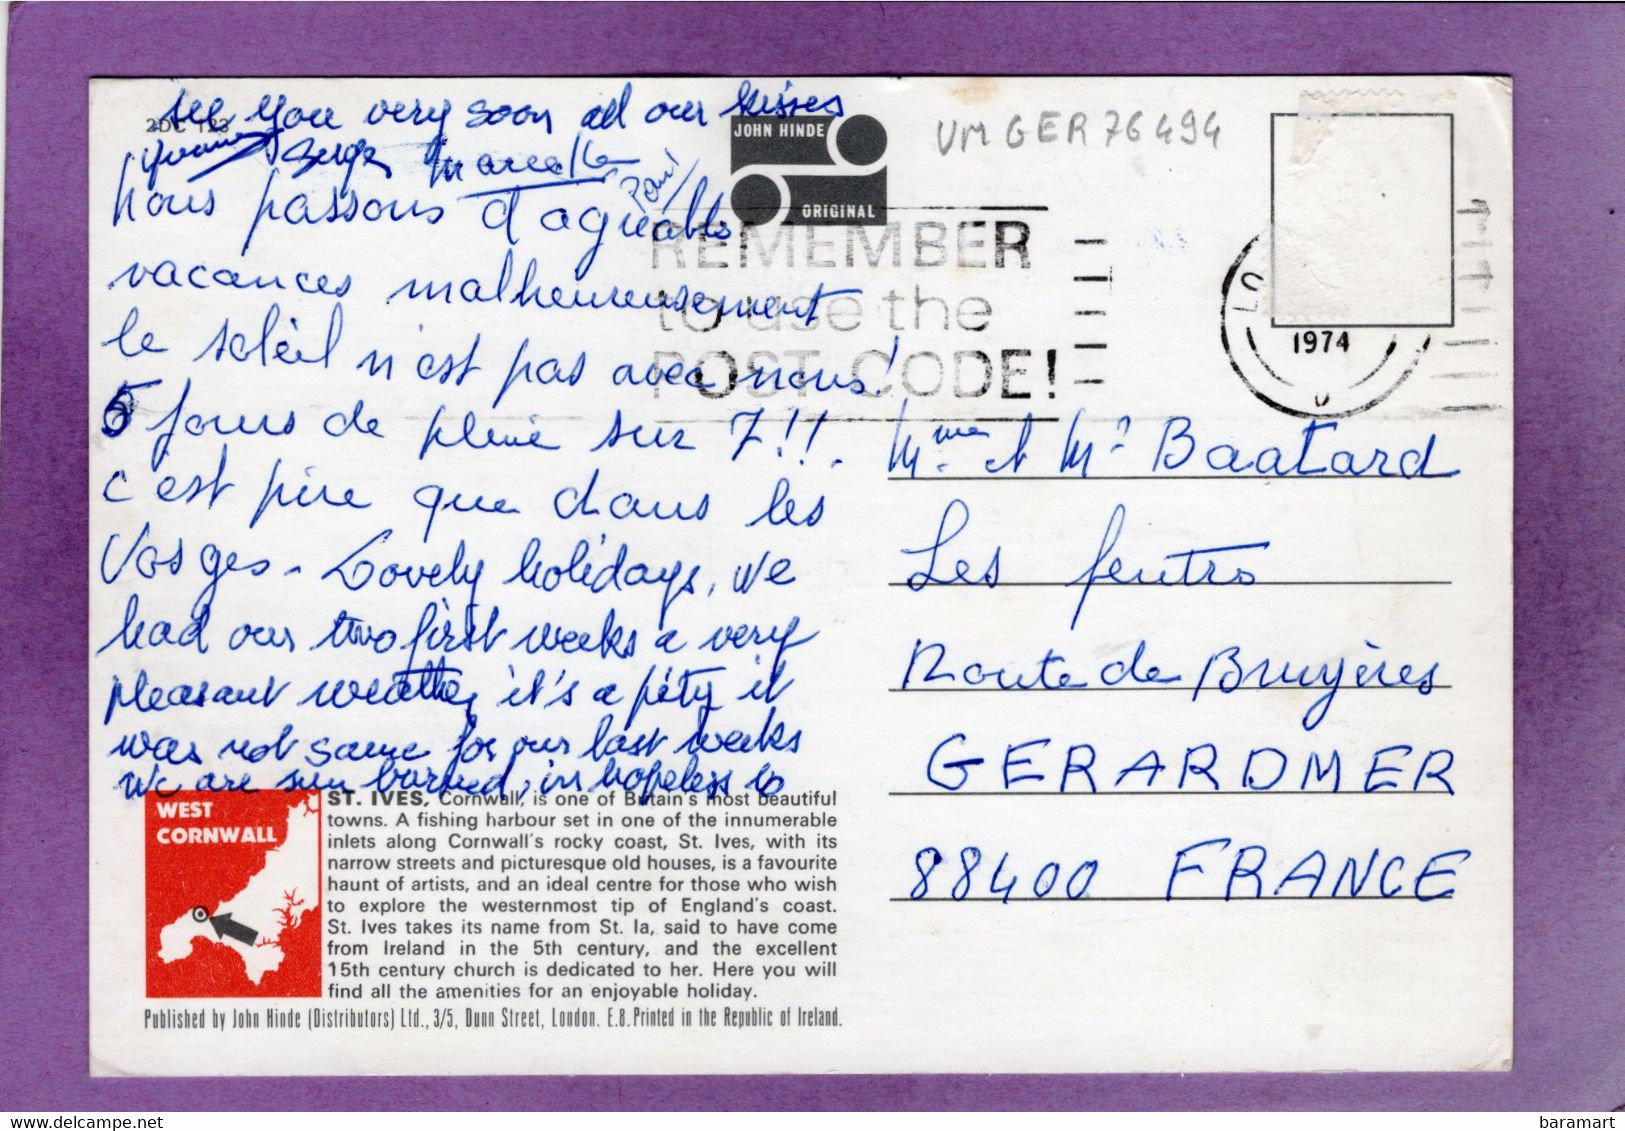 see you very soon all our kisses
2DC 123
Yvonne Serge Marcelle
nous passons d'agréables
vacances malheureusement
le soleil n'est pas avec nous!
5 jours de pluie sur 7!!.
C'est pire que dans les
Vosges - Lovely holidays, we
had our two first weeks a very
pleasant weather, it's a péty it
was not same for our last weeks
We are sun burned, in hopeless to
JOHN HINDE
ORIGINAL
VMGER76494
REMEMBER
to use the
POST CODE!
LO
1974
Mme et Mr Baatard
Les feutres
Route de Bruyères
GERARDMER
88400 FRANCE
WEST
CORNWALL
ST. IVES, Cornwall, is one of Britain's most beautiful
towns. A fishing harbour set in one of the innumerable
inlets along Cornwall's rocky coast, St. Ives, with its
narrow streets and picturesque old houses, is a favourite
haunt of artists, and an ideal centre for those who wish
to explore the westernmost tip of England's coast.
St. Ives takes its name from St. Ia, said to have come
from Ireland in the 5th century, and the excellent
15th century church is dedicated to her. Here you will
find all the amenities for an enjoyable holiday.
Published by John Hinde (Distributors) Ltd., 3/5, Dunn Street, London. E.8. Printed in the Republic of Ireland.
baramart